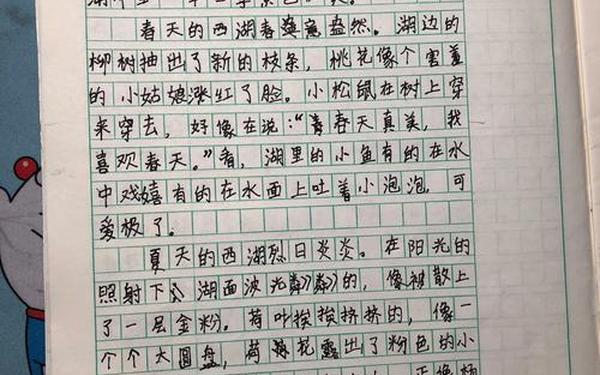 春天的西湖春意盎然。湖边的
柳树抽出了新的枝条，桃花像个害羞
的小姑娘涨红了脸。小松鼠在树上穿
来穿去，好像在说：“春天真美，我
喜欢春天。”看，湖里的小鱼有的在水
中戏嬉有的在水面上吐着小泡泡，可
爱极了。
夏天的西湖烈日炎炎。在阳光的
照射下，湖面波光粼粼的，像被散上
了一层金粉。荷叶挨挨挤挤的，像一
个个大圆盘，荷花露出了粉色的小